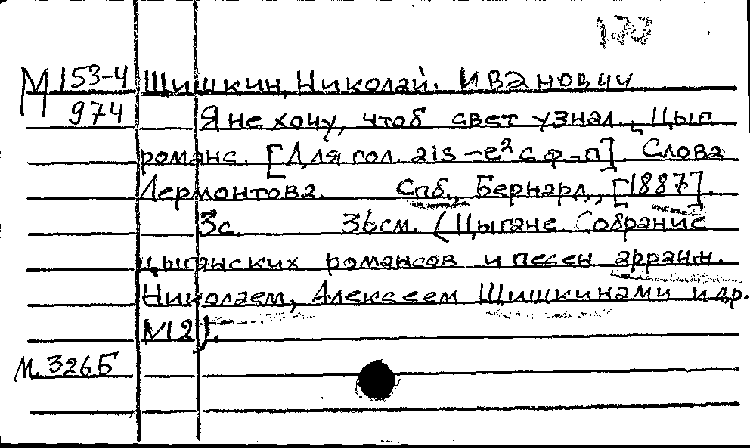 М 153-4 Шишкин, Николай. Иванович
974 Я не хочу, чтоб свет узнал. Цыг.
романс. [Для гол. ais – e² с ф-п]. Слова
Лермонтова. Спб., Бернард, [1887].
3с. 36см. (Цыгане. Собрание
цыганских романсов и песен арранж.
Николаем, Алексеем Шишкинами и др.
№12).
М. 326Б